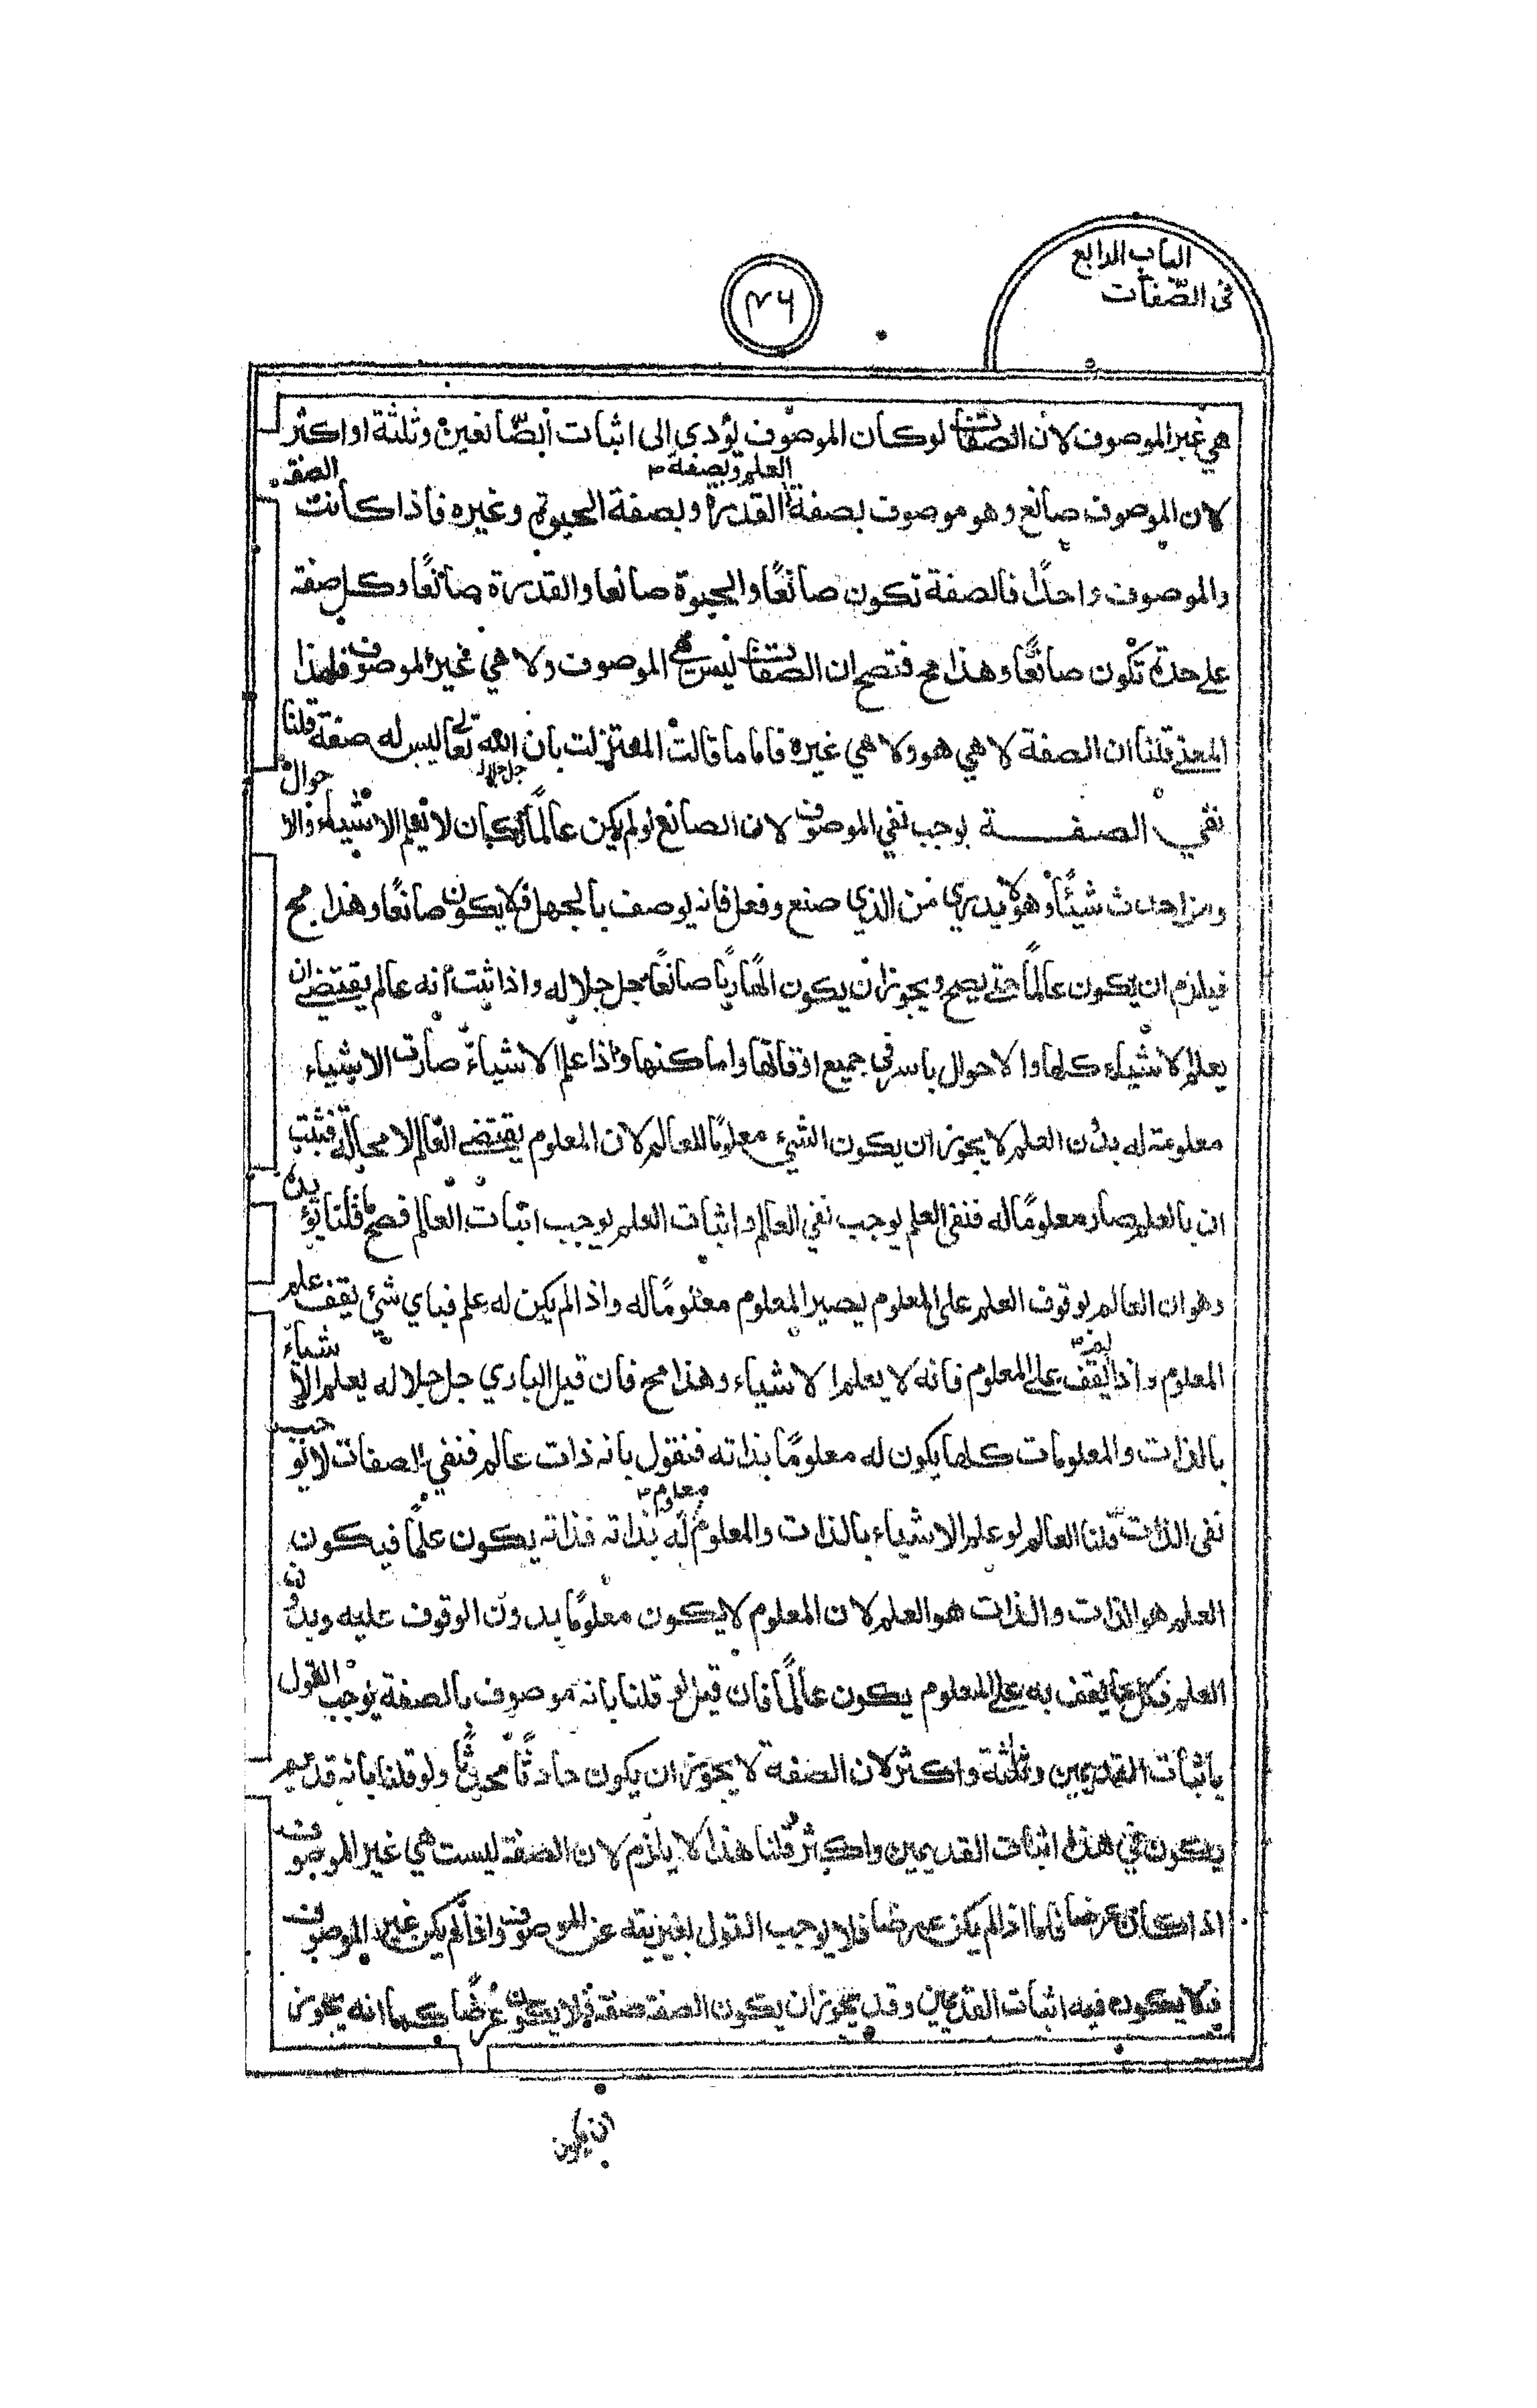 الباب الرابع
فى الصّفات
٤٦
هي غير الموصوف لان الصفات لو كان الموصوف يؤدي الى اثبات الصّانعين وثلثة او اكثر
لان الموصوف صانع وهو موصوف بصفة العلم وبصفة القدرة وبصفة الحيوة وغيره فاذا كانت الصفة
والموصوف واحدًا فالصفة تكون صانعًا والحيوة صانعا والقدرة صانعًا وكل صفة
على حدة تكون صانعًا وهذا مح فتصح ان الصفات ليس هي الموصوف ولا هي غير الموصوف فلهذا
المعنى قلنا ان الصفة لا هي هو ولا هي غيره فاما ما قالت المعتزلة بان الله تعالى جل جلاله ليس له صفة قلنا
نفي الصفة يوجب نفي الموصوف لان الصانع لو لم يكن عالمًا لكان لا يعلم الاشياء والاحوال
ومن احدث شيئًا وهو لا يدري من الذي صنع وفعل فانه يوصف بالجهل فلا يكون صانعًا وهذا مح
فيلزم ان يكون عالمًا حتى يصح ويجوز ان يكون الهًا ربًا صانعًا جل جلاله واذا ثبت انه عالم يقتضى ان
يعلم الاشياء كلها والاحوال باسرها في جميع اوقاتها واماكنها واذا علم الاشياء صارت الاشياء
معلومة له بدن العلم لا يجوز ان يكون الشيء معلومًا للعالم لان المعلوم يقتضى العالم لا محالة فثبت
ان بالعلم صار معلومًا له فنفى العلم يوجب نفي العالم واثبات العلم يوجب اثبات العالم فصح ما قلنا يؤيده
وهو ان العالم بوقوف العلم على المعلوم يصير المعلوم معلومًا له واذا لم يكن له علم فباي شئ يقف على
المعلوم واذا لم يقف على المعلوم فانه لا يعلم الاشياء وهذا مح فان قيل الباري جل جلاله يعلم الاشياء
بالذات والمعلومات كلها يكون له معلومًا بذاته فنقول بانه ذات عالم فنفي الصفات لا يوجب
نفى الذات قلنا العالم لو علم الاشياء بالذات والمعلوم معلوم له بذاته فذاته يكون علمًا فيكون
العلم هو الذات والذات هو العلم لان المعلوم لا يكون معلومًا بدون الوقوف عليه وبدون
العلم فكل ما يقف به على المعلوم يكون عالمًا فان قيل لو قلنا بانه موصوف بالصفة يوجب القول
باثبات القديمين وثلثة واكثر لان الصفة لا يجوز ان يكون حادثًا محدثًا ولو قلنا بانه قديم
يكون في هذا اثبات القديمين واكثر قلنا هذا لا يلزم لان الصفة ليست هي غير الموصوف
اذا كان عرضا فاما اذا لم يكن عرضا فلا يوجب القول بغيريته عن الموصوف واذا لم يكن غير الموصوف
فلا يكون فيه اثبات القديمين وقد يجوز ان يكون الصفة صفة فلا يكون عرضًا كما انه يجوز
ان يكون